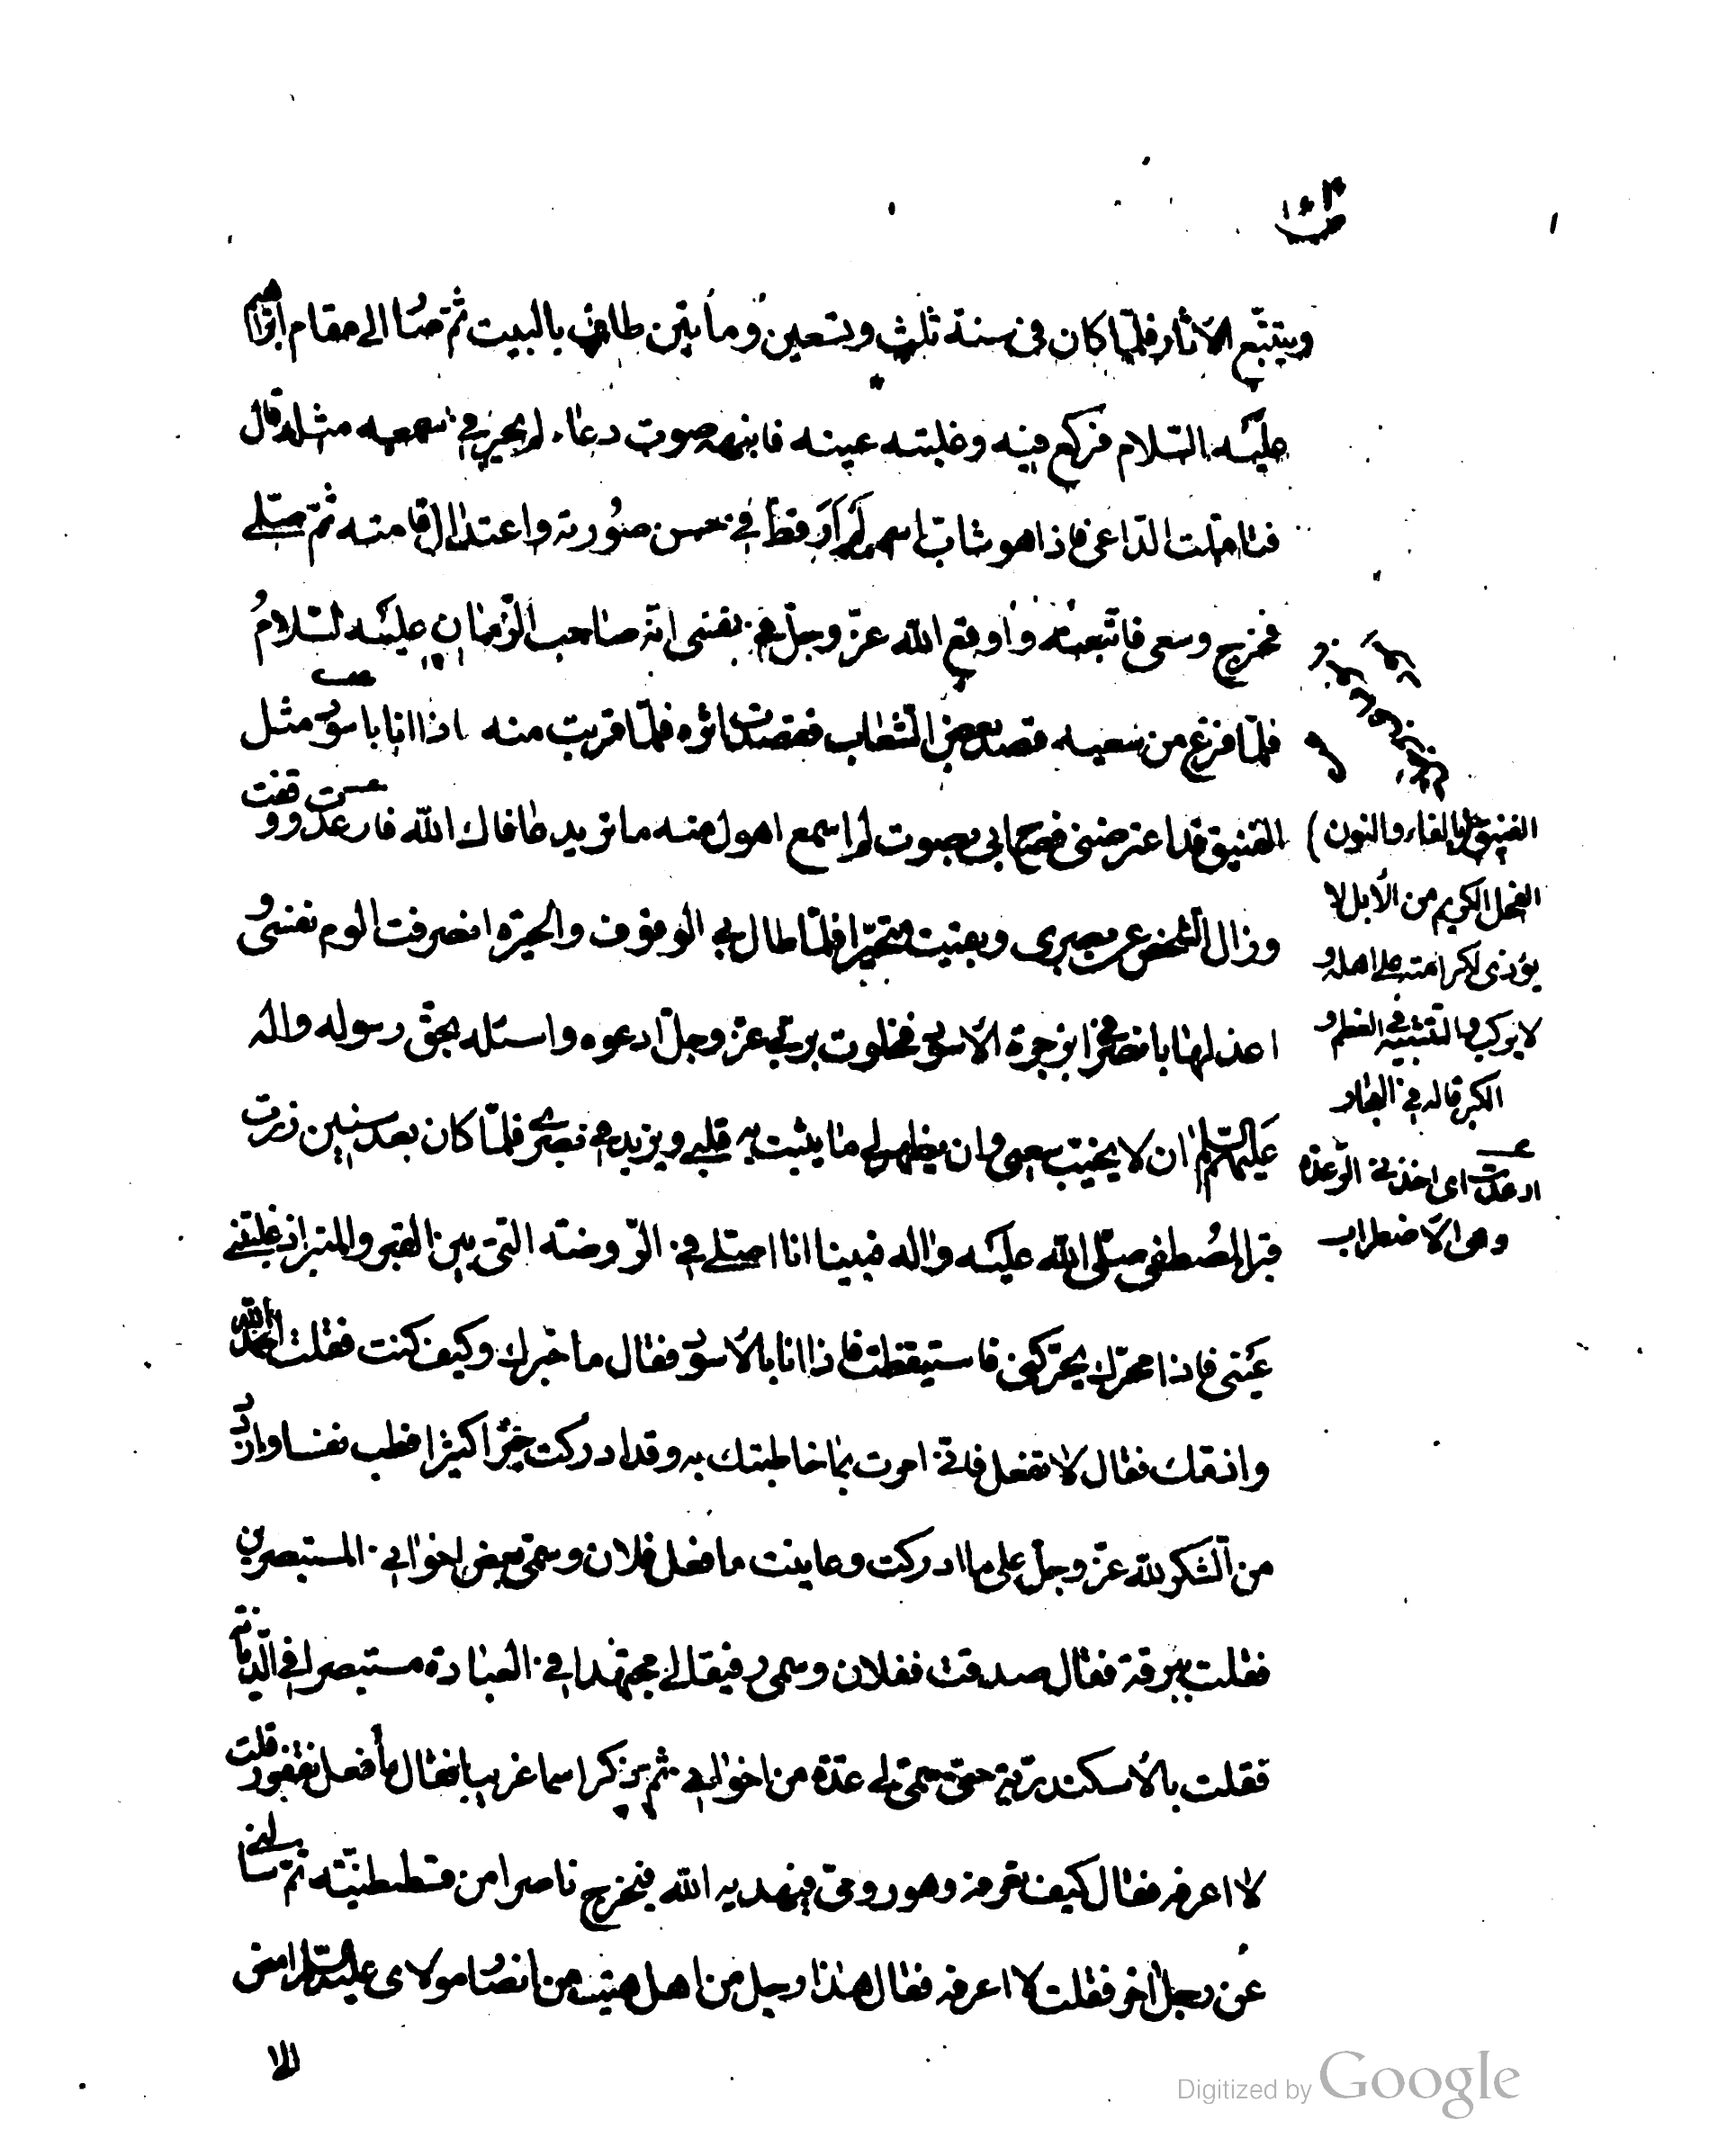 ويتتبّع الاثار فلمّا كان فى سنة ثلث وتسعين ومأتين طاف بالبيت ثمّ صا الى مقام ابراهيم
عليه السّلام فركع فيه وغلبته عينه فانبهه صوت دعاء لم يجر فى سمعه مثله قال
فتاملت الدّاعى فاذا هو شابّ اسمر لم ار قط فى حسن صورته واعتدال قامته ثمّ صلّى
فخرج وسعى فاتبعته واوقع الله عزّ وجلّ فى نفسى انّه صاحب الزّمان عليه السّلامُ
فلمّا فرغ من سعيه قصد بعض الشّعاب فقصدت اثره فلمّا قربت منه اذا انا باسود مثل
الفنيق قد اعترضنى فصاح بى بصوت لم اسمع اهول منه ما تريد عافاك الله فارعدت ووقفت
وزال الشخص عن بصرى وبقيت متحيّرا فلمّا طال بى الوقوف والحيرة انصرفت الوم نفسى و
اعذلها بانصرافى بزجرة الاسود فخلوت بربّى عزّ وجلّ ادعوه واسئله بحقّ رسوله واله
عليهم السّلم ان لا يخيّب سعيى وان يظهر لى ما يثبت به قلبى ويزيد فى بصرى فلمّا كان بعد سنين زرت
قبر المصطفى صلّى الله عليه واله فبينا انا اصلّى فى الرّوضة التى بين القبر والمنبر اذ غلبتنى
عينى فاذا محرّك يحرّكنى فاستيقظت فاذا انا بالاسود فقال ما خبرك وكيف كنت فقلت احمد الله
واذمّك فقال لا تفعل فانّى امرت بما خاطبتك به وقد ادركت خيرا كثيرا فطب نفسا وازدد
من الشكر لله عزّ وجلّ على ما ادركت وعاينت ما فعل فلان وسمّى بعض اخوانى المستبصرين
فقلت ببرقة فقال صدقت ففلان وسمى رفيقا لى مجتهدا فى العبادة مستبصرا فى الدّيانة
فقلت بالاسكندريّة حتى سمّى لى عدّة من اخوانى ثم ذكر اسما غريبا فقال ما فعل نقفور قلت
لا اعرفه فقال كيف تعرفه وهو رومىّ فيهديه الله فيخرج ناصرا من قسطنطنيّة ثمّ سالنى
عن رجل اخر فقلت لا اعرفه فقال هذا رجل من اهل هيت من انصا مولاى عليه السّلم امض
الا
الفنيق بالفاء والنون
الفحل الكريم من الابل لا
يؤذى لكرامته على اهله و
لا يركب والتشبيه فى العظم و
الكبر قاله فى البحار
ارعدت اى اخذتنى الرّعدة
وهى الاضطراب
Digitized by Google